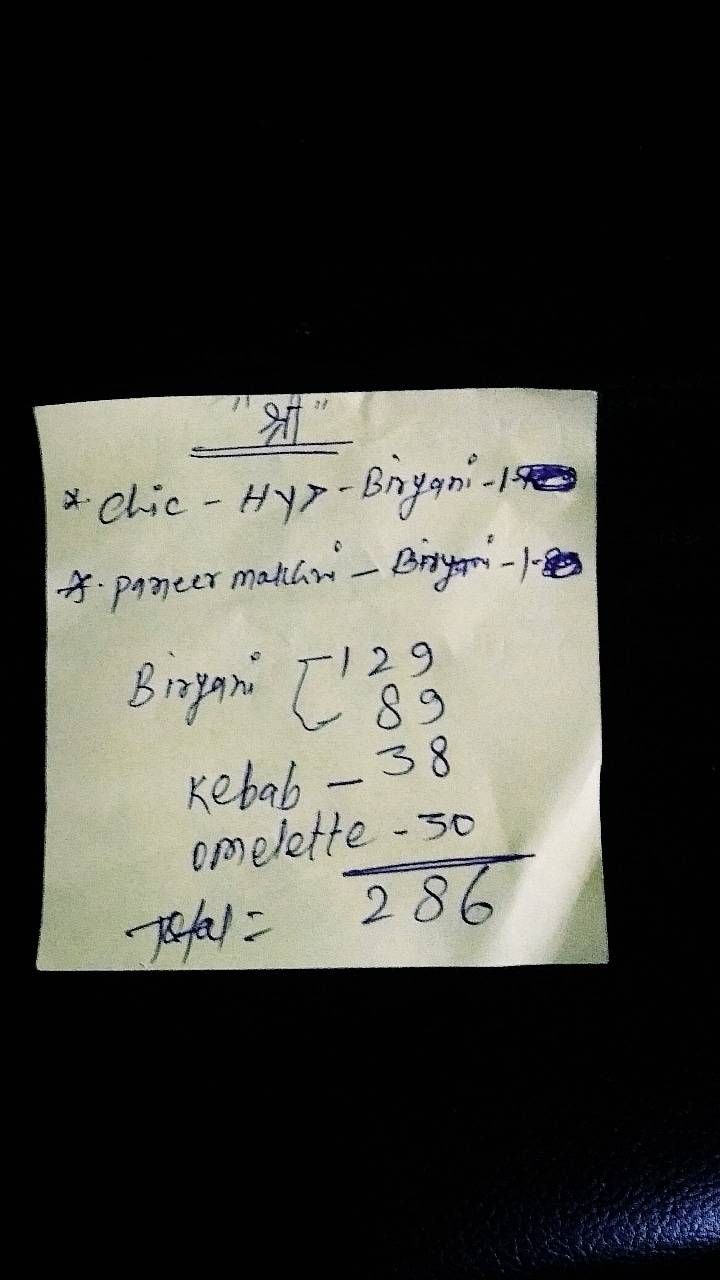 "श्री"
* Chic - HYD - Biryani - 1
* . paneer makhni - Biryani - 1
Biryani [ 129
89
Kebab - 38
omelette - 30
Total = 286